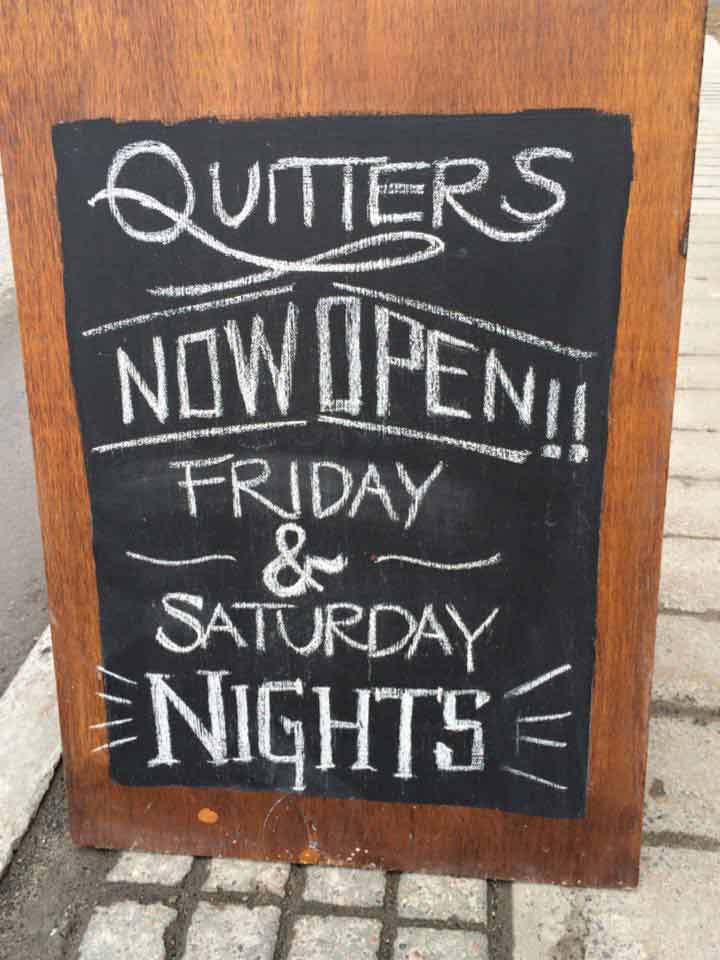 QUITTERS
NOW OPEN!!
FRIDAY
&
SATURDAY
NIGHTS